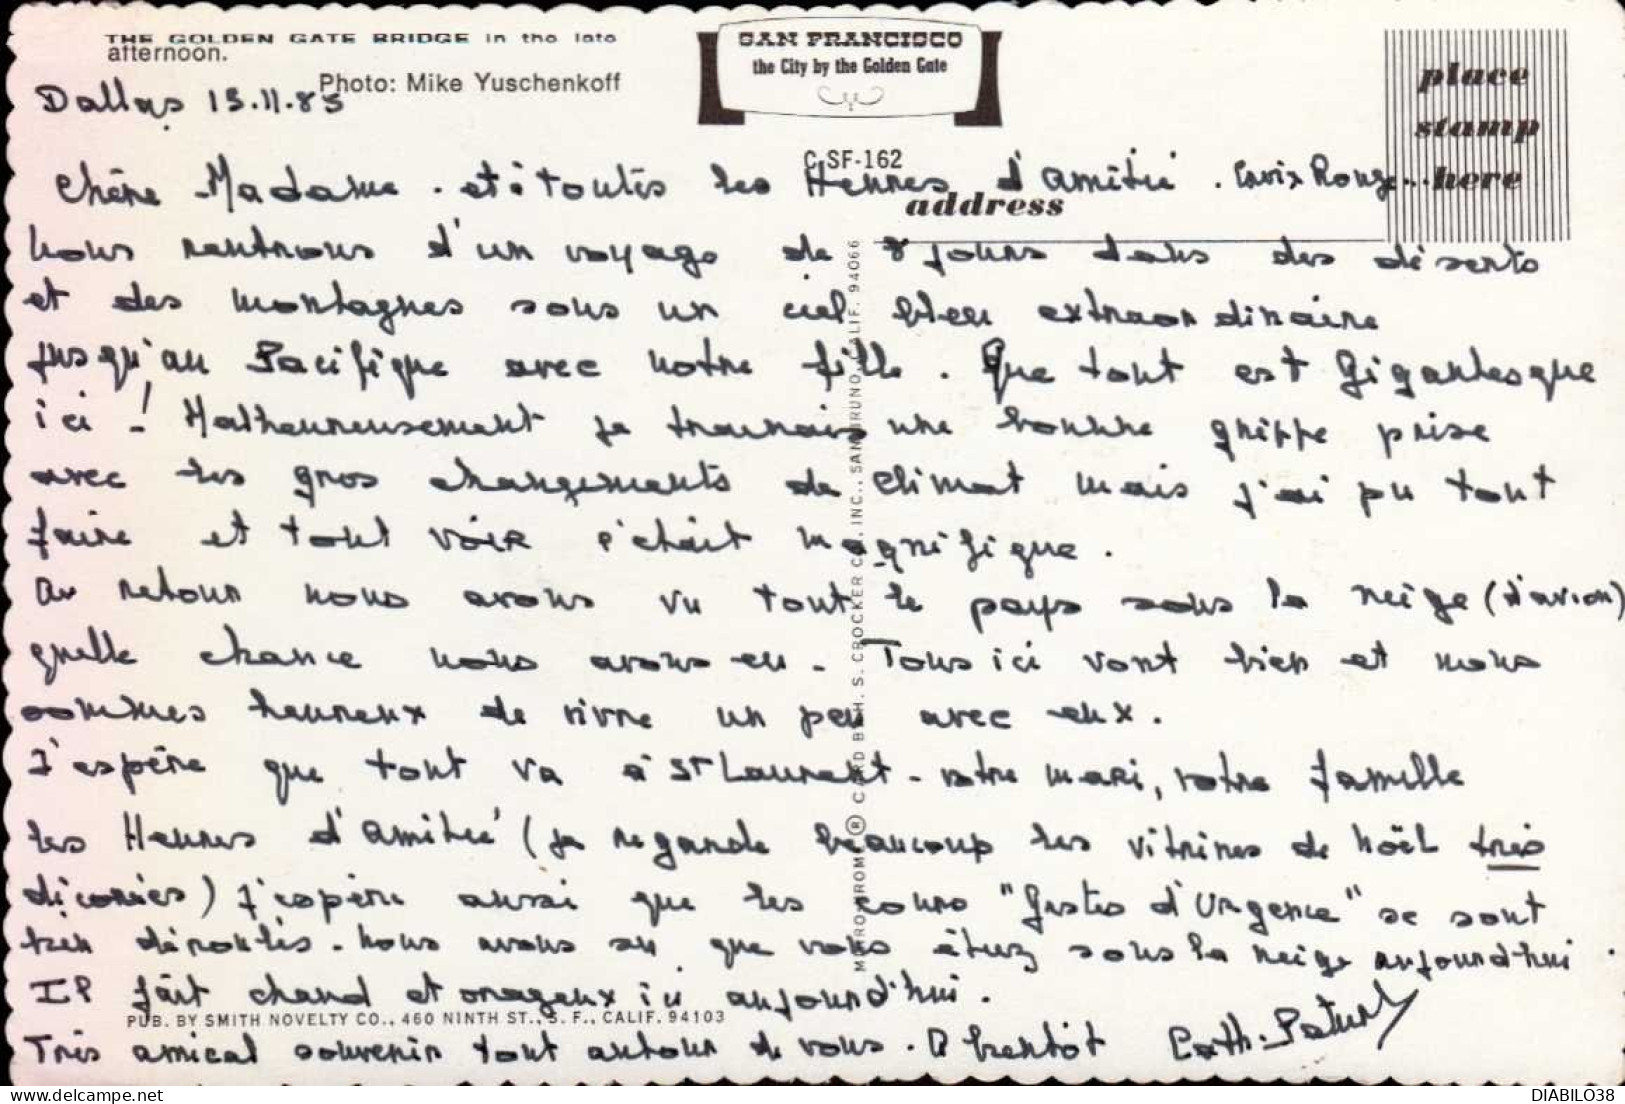 THE GOLDEN GATE BRIDGE in the late
afternoon.
Photo: Mike Yuschenkoff
SAN FRANCISCO
the City by the Golden Gate
place
stamp
here
C SF-162
address
Dallas 15.11.85
Chère Madame . et à toutes les Heures d'amitié . Croix Rouge...
Nous rentrons d'un voyage de 8 jours dans des déserts
et des montagnes sous un ciel bleu extraordinaire
jusqu'au Pacifique avec notre fille . Que tout est Gigantesque
ici ! Malheureusement je trainais une bonne grippe prise
avec les gros changements de climat mais j'ai pu tout
faire et tout voir c'était magnifique .
Au retour nous avons vu tout le pays sous la neige (d'avion)
quelle chance nous avons eu - Tous ici vont bien et nous
sommes heureux de vivre un peu avec eux .
J'espère que tout va à St Laurent - votre mari, votre famille
les Heures d'amitié (je regarde beaucoup les vitrines de Noël très
décorées) J'espère aussi que les cours "Gestes d'Urgence" se sont
bien déroulés - Nous avons su que vous étiez sous la neige aujourd'hui .
Il fait chaud et orageux ici aujourd'hui .
Très amical souvenir tout autour de vous . A bientôt Cath.
MIRRO-KROME ® CARD BY H. S. CROCKER CO. INC., SAN BRUNO, CALIF. 94066
PUB. BY SMITH NOVELTY CO., 460 NINTH ST., S. F., CALIF. 94103
DIABILO38